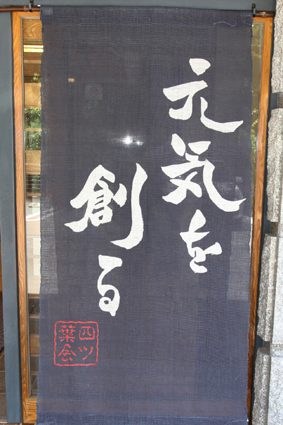 元気を
創る
四ツ
葉会